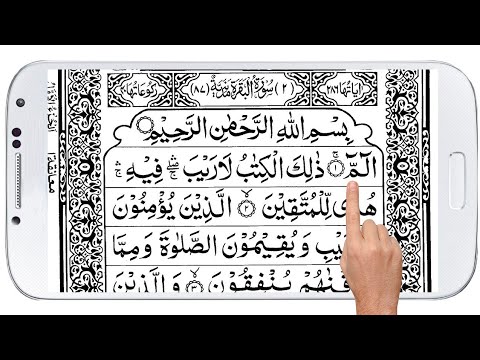 اٰيَاتُهَا ٢٨٦ (٢) سُوْرَةُ الْبَقَرَةِ مَدَنِيَّةٌ (٨٧) رُكُوْعَاتُهَا
بِسْمِ اللّٰهِ الرَّحْمٰنِ الرَّحِيْمِ
الٓمّٓ ۚ١ ذٰلِكَ الْكِتٰبُ لَا رَيْبَ ۛ فِيْهِ ۛ
هُدًى لِّلْمُتَّقِيْنَ ۙ٢ الَّذِيْنَ يُؤْمِنُوْنَ
وَيُقِيْمُوْنَ الصَّلٰوةَ وَمِمَّا
يُنْفِقُوْنَ ۙ٣ وَالَّذِيْنَ